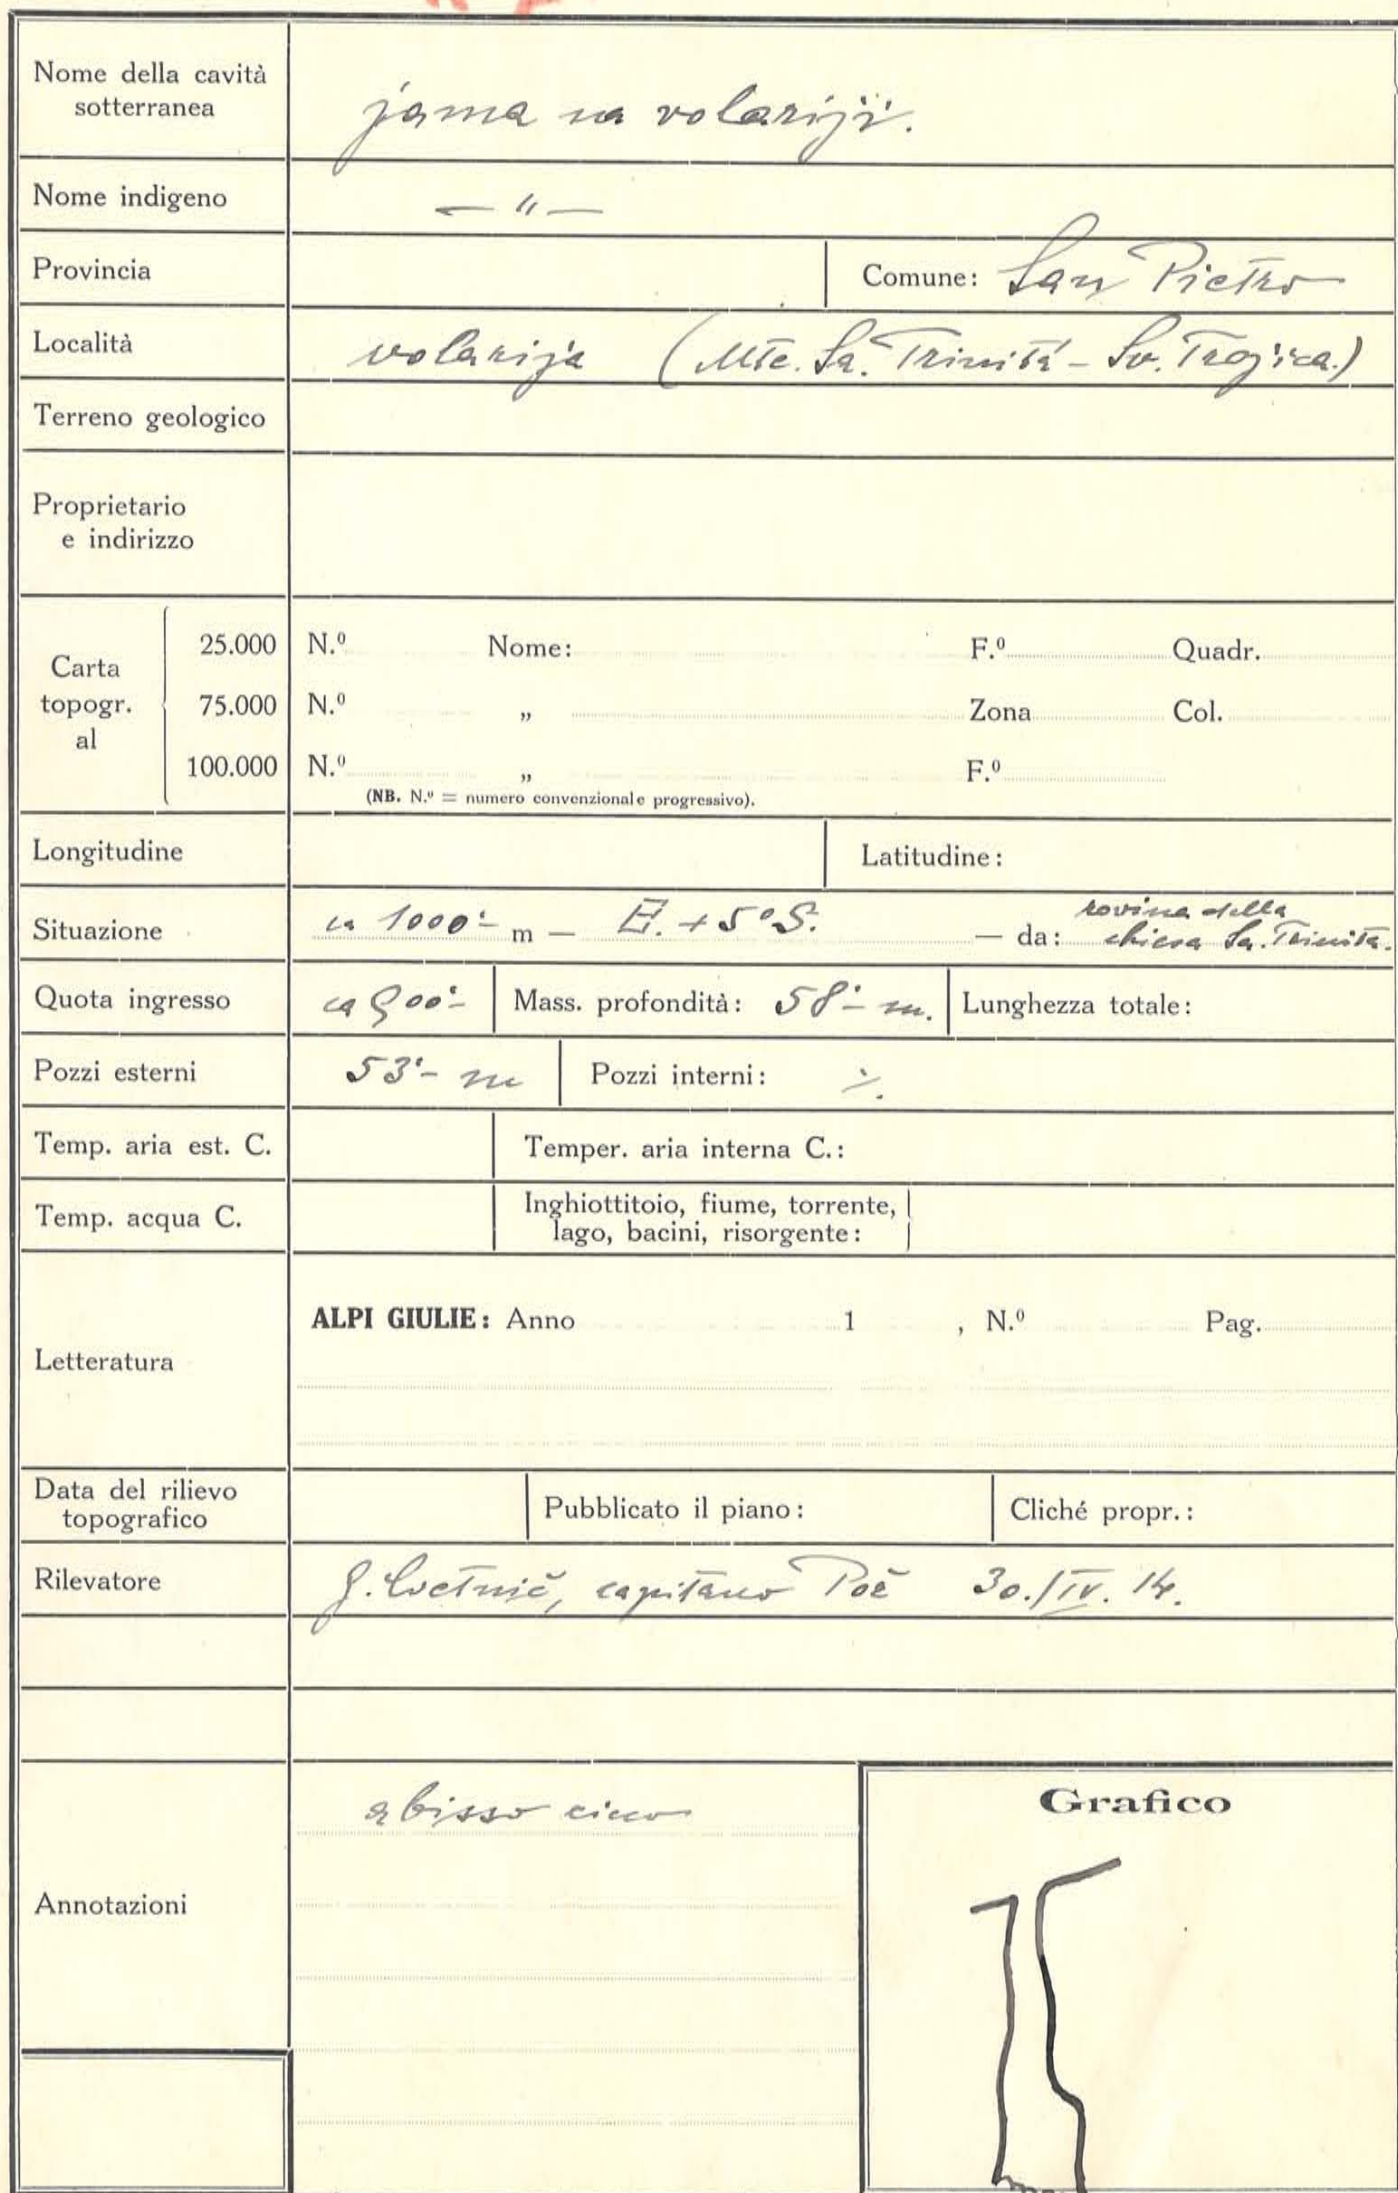 Nome della cavità
sotterranea
jama na volariji.
Nome indigeno
— " —
Provincia
Comune: San Pietro
Località
volarija (Mte. Sa. Trinitá - Sv. Trojica.)
Terreno geologico
Proprietario
e indirizzo
Carta
topogr.
al
25.000 N.º Nome: F.º Quadr.
75.000 N.º „ Zona Col.
100.000 N.º „ F.º
(NB. N.º = numero convenzionale progressivo).
Longitudine
Latitudine:
Situazione
ca 1000·- m — E. + 5° S. — da: rovina della
chiesa Sa. Trinita.
Quota ingresso
ca 900·-
Mass. profondità: 58·- m.
Lunghezza totale:
Pozzi esterni
53·- m
Pozzi interni:
Temp. aria est. C.
Temper. aria interna C.:
Temp. acqua C.
Inghiottitoio, fiume, torrente,
lago, bacini, risorgente:
Letteratura
ALPI GIULIE: Anno 1 , N.º Pag.
Data del rilievo
topografico
Pubblicato il piano:
Cliché propr.:
Rilevatore
capitano 30./IV. 14.
Annotazioni
abisso cieco
Grafico